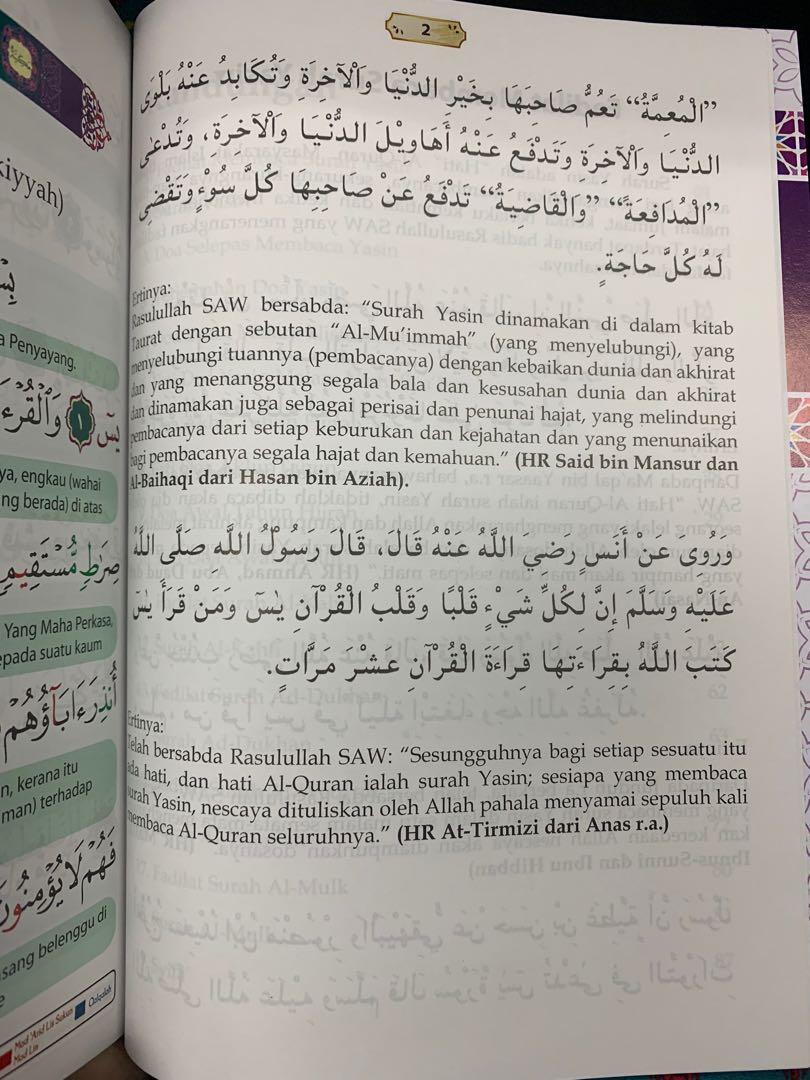 2
”الْمُعِمَّةُ“ تَعُمُّ صَاحِبَهَا بِخَيْرِ الدُّنْيَا وَالْآخِرَةِ وَتُكَابِدُ عَنْهُ بَلْوَى
الدُّنْيَا وَالْآخِرَةِ وَتَدْفَعُ عَنْهُ أَهَاوِيْلَ الدُّنْيَا وَالْآخِرَةِ، وَتُدْعَى
”الْمُدَافِعَةَ“ ”وَالْقَاضِيَةُ“ تَدْفَعُ عَنْ صَاحِبِهَا كُلَّ سُوْءٍ وَتَقْضِى
لَهُ كُلَّ حَاجَةٍ.
Ertinya:
Rasulullah SAW bersabda: “Surah Yasin dinamakan di dalam kitab
Taurat dengan sebutan “Al-Mu’immah” (yang menyelubungi), yang
menyelubungi tuannya (pembacanya) dengan kebaikan dunia dan akhirat
dan yang menanggung segala bala dan kesusahan dunia dan akhirat
dan dinamakan juga sebagai perisai dan penunai hajat, yang melindungi
pembacanya dari setiap keburukan dan kejahatan dan yang menunaikan
bagi pembacanya segala hajat dan kemahuan.” (HR Said bin Mansur dan
Al-Baihaqi dari Hasan bin Aziah).
وَرُوِىَ عَنْ أَنَسٍ رَضِيَ اللَّهُ عَنْهُ قَالَ، قَالَ رَسُوْلُ اللَّهِ صَلَّى اللَّهُ
عَلَيْهِ وَسَلَّمَ إِنَّ لِكُلِّ شَيْءٍ قَلْبًا وَقَلْبُ الْقُرْآنِ يٰسٓ وَمَنْ قَرَأَ يٰسٓ
كَتَبَ اللَّهُ بِقِرَاءَتِهَا قِرَاءَةَ الْقُرْآنِ عَشْرَ مَرَّاتٍ.
Ertinya:
Telah bersabda Rasulullah SAW: “Sesungguhnya bagi setiap sesuatu itu
ada hati, dan hati Al-Quran ialah surah Yasin; sesiapa yang membaca
surah Yasin, nescaya dituliskan oleh Allah pahala menyamai sepuluh kali
membaca Al-Quran seluruhnya.” (HR At-Tirmizi dari Anas r.a.)
kiyyah)
Penyayang.
يسٓ ١ وَالْقُرْءَ
ya, engkau (wahai
ng berada) di atas
صِرَٰطٍ مُّسْتَقِيمٍ
Yang Maha Perkasa,
epada suatu kaum
أُنذِرَ ءَابَآؤُهُمْ
n, kerana itu
man) terhadap
فَهُمْ لَا يُؤْمِنُونَ
sang belenggu di
Mad 'Arid Lis Sukun
Mad Lin
Qalqalah